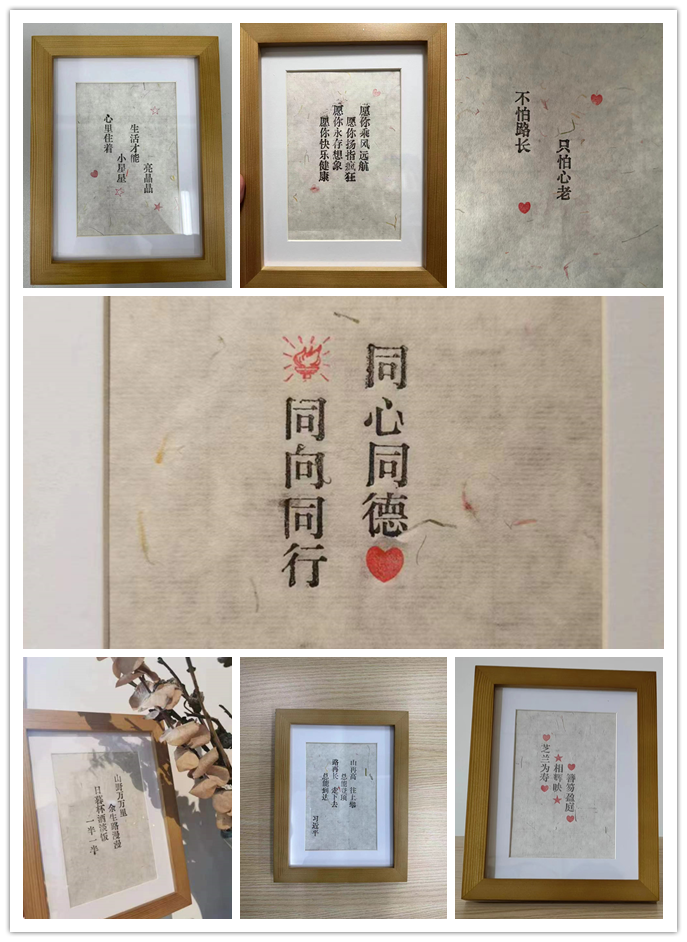 心里住着
小星星
生活才能
亮晶晶
愿你乘风远航
愿你扬指疯狂
愿你永存想象
愿你快乐健康
不怕路长
只怕心老
同心同德
同向同行
山野万万里
余生路漫漫
日暮杯酒淡饭
一半一半
山再高 往上攀
总能登顶
路再长 走下去
总能到达
习近平
芝兰为寿
相辉映
簪笏盈庭